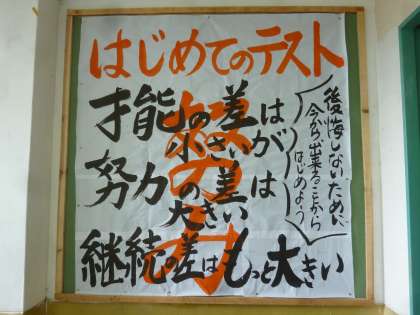 はじめてのテスト
才能の差は
小さいが
努力の差は
大きい
継続の差はもっと大きい
後悔しないために、
今から、出来ることから
はじめよう